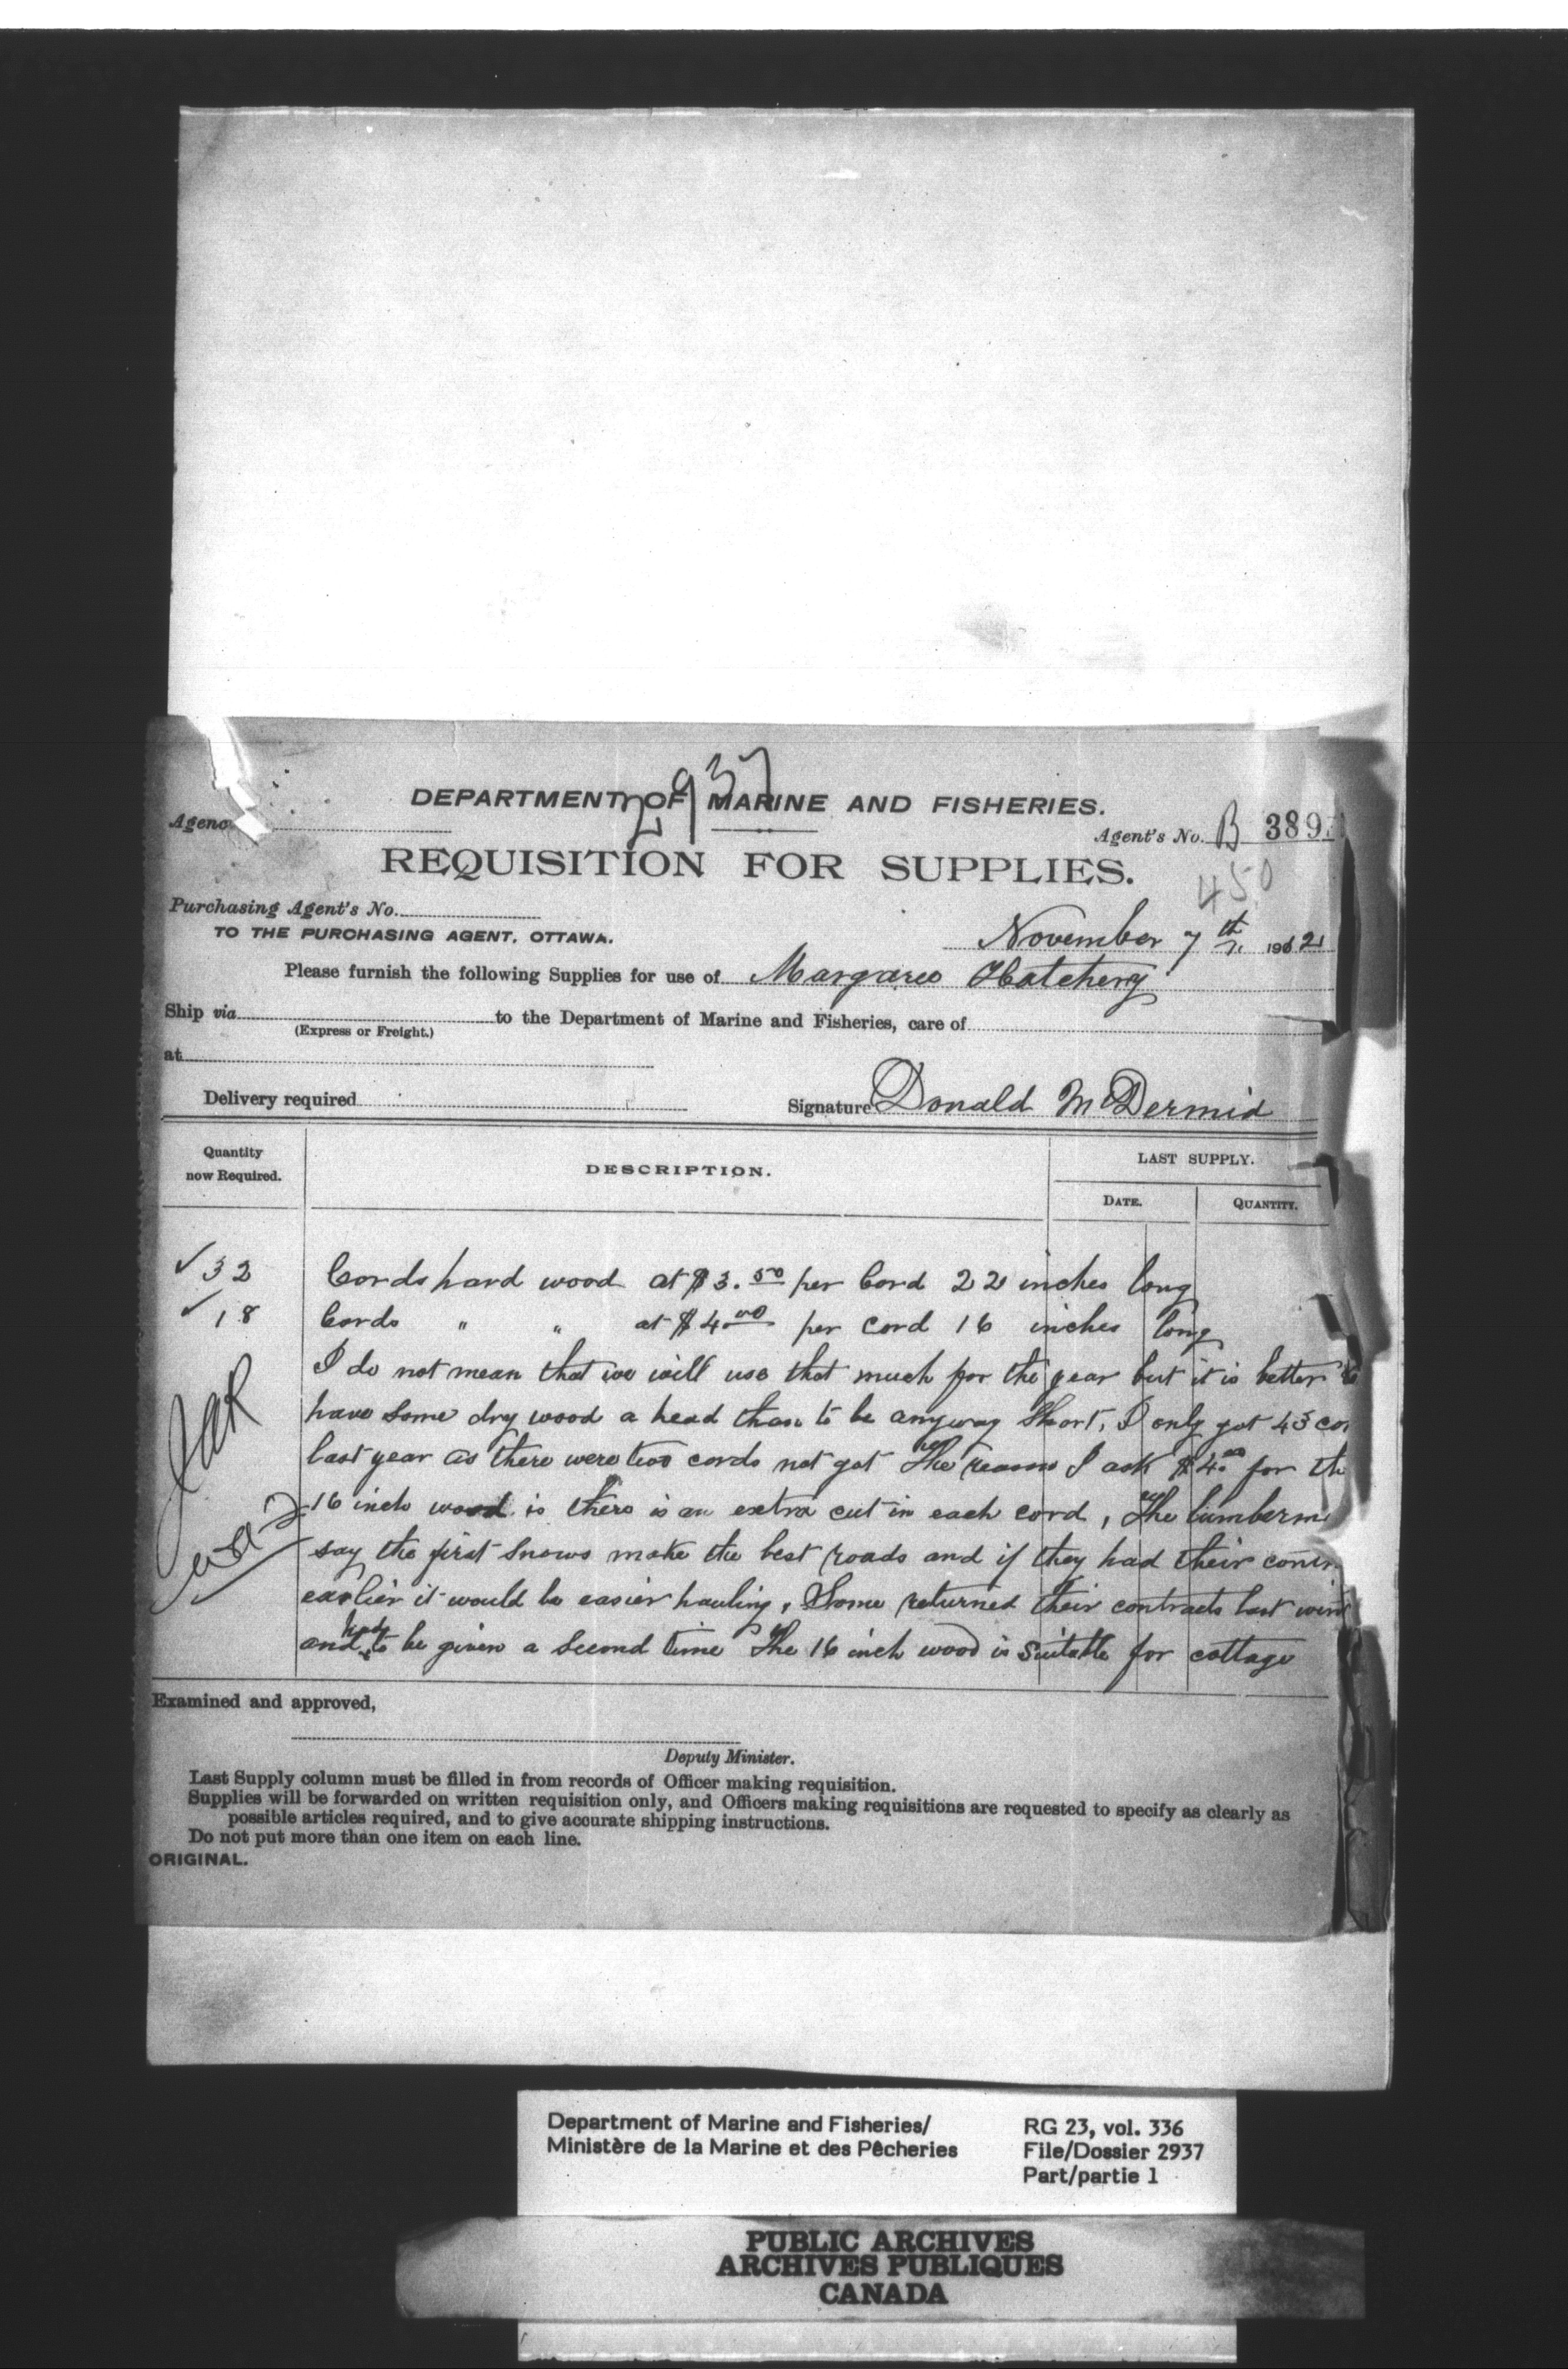 2937
DEPARTMENT OF MARINE AND FISHERIES.
Agenc
Agent's No. B 389
REQUISITION FOR SUPPLIES.
450
Purchasing Agent's No.
TO THE PURCHASING AGENT, OTTAWA.
November 7th 19
Please furnish the following Supplies for use of Margaree Hatchery
Ship via to the Department of Marine and Fisheries, care of
(Express or Freight.)
at
Delivery required
Signature Donald McDermid
Quantity now Required.
DESCRIPTION.
LAST SUPPLY.
DATE.
QUANTITY.
✓ 32 Cords hard wood at $3.50 per Cord 22 inches long
✓ 18 Cords " " at $4.00 per cord 16 inches long
I do not mean that we will use that much for the year but it is better to
have some dry wood a head than to be anyway Short, I only got 43 cor
last year as there were two cords not got The reason I ask $4.00 for th
16 inch wood is there is an extra cut in each cord, The lumberm
say the first Snows make the best roads and if they had their contr
earlier it would be easier hauling, Some returned their contracts last wint
and had to be given a Second time The 16 inch wood is Suitable for cottage
Examined and approved,
Deputy Minister.
Last Supply column must be filled in from records of Officer making requisition.
Supplies will be forwarded on written requisition only, and Officers making requisitions are requested to specify as clearly as
possible articles required, and to give accurate shipping instructions.
Do not put more than one item on each line.
ORIGINAL.
Department of Marine and Fisheries/
Ministère de la Marine et des Pêcheries
RG 23, vol. 336
File/Dossier 2937
Part/partie 1
PUBLIC ARCHIVES
ARCHIVES PUBLIQUES
CANADA